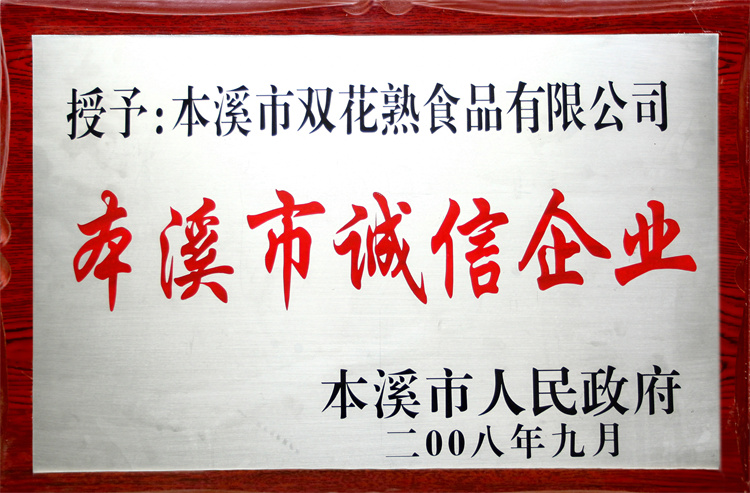 授予:本溪市双花熟食品有限公司
本溪市诚信企业
本溪市人民政府
二00八年九月